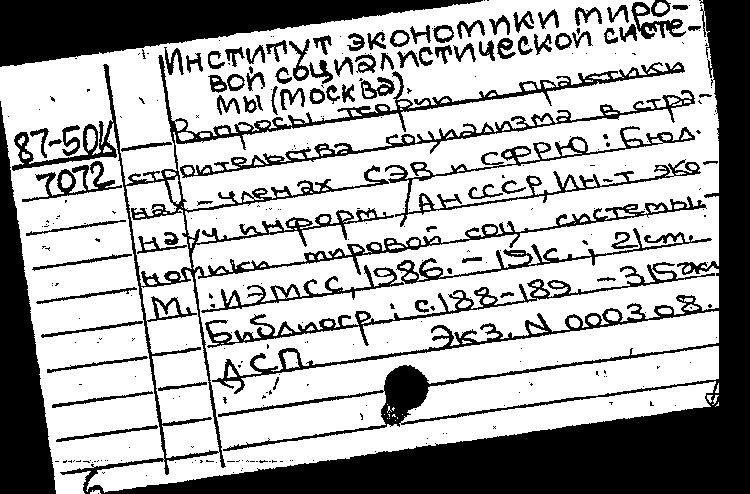 Институт экономики миро-
вой социалистической систе-
мы (Москва).
87-50К
7072
Вопросы теории и практики
строительства социализма в стра-
нах-членах СЭВ и СФРЮ : Бюл.
науч. информ. / АН СССР, Ин-т эко-
номики мировой соц. системы.-
М. : ИЭМСС, 1986. - 191с. ; 21см.
Библиогр.: с.188-189. - 315экз.
ДСП. Экз. N 000308.